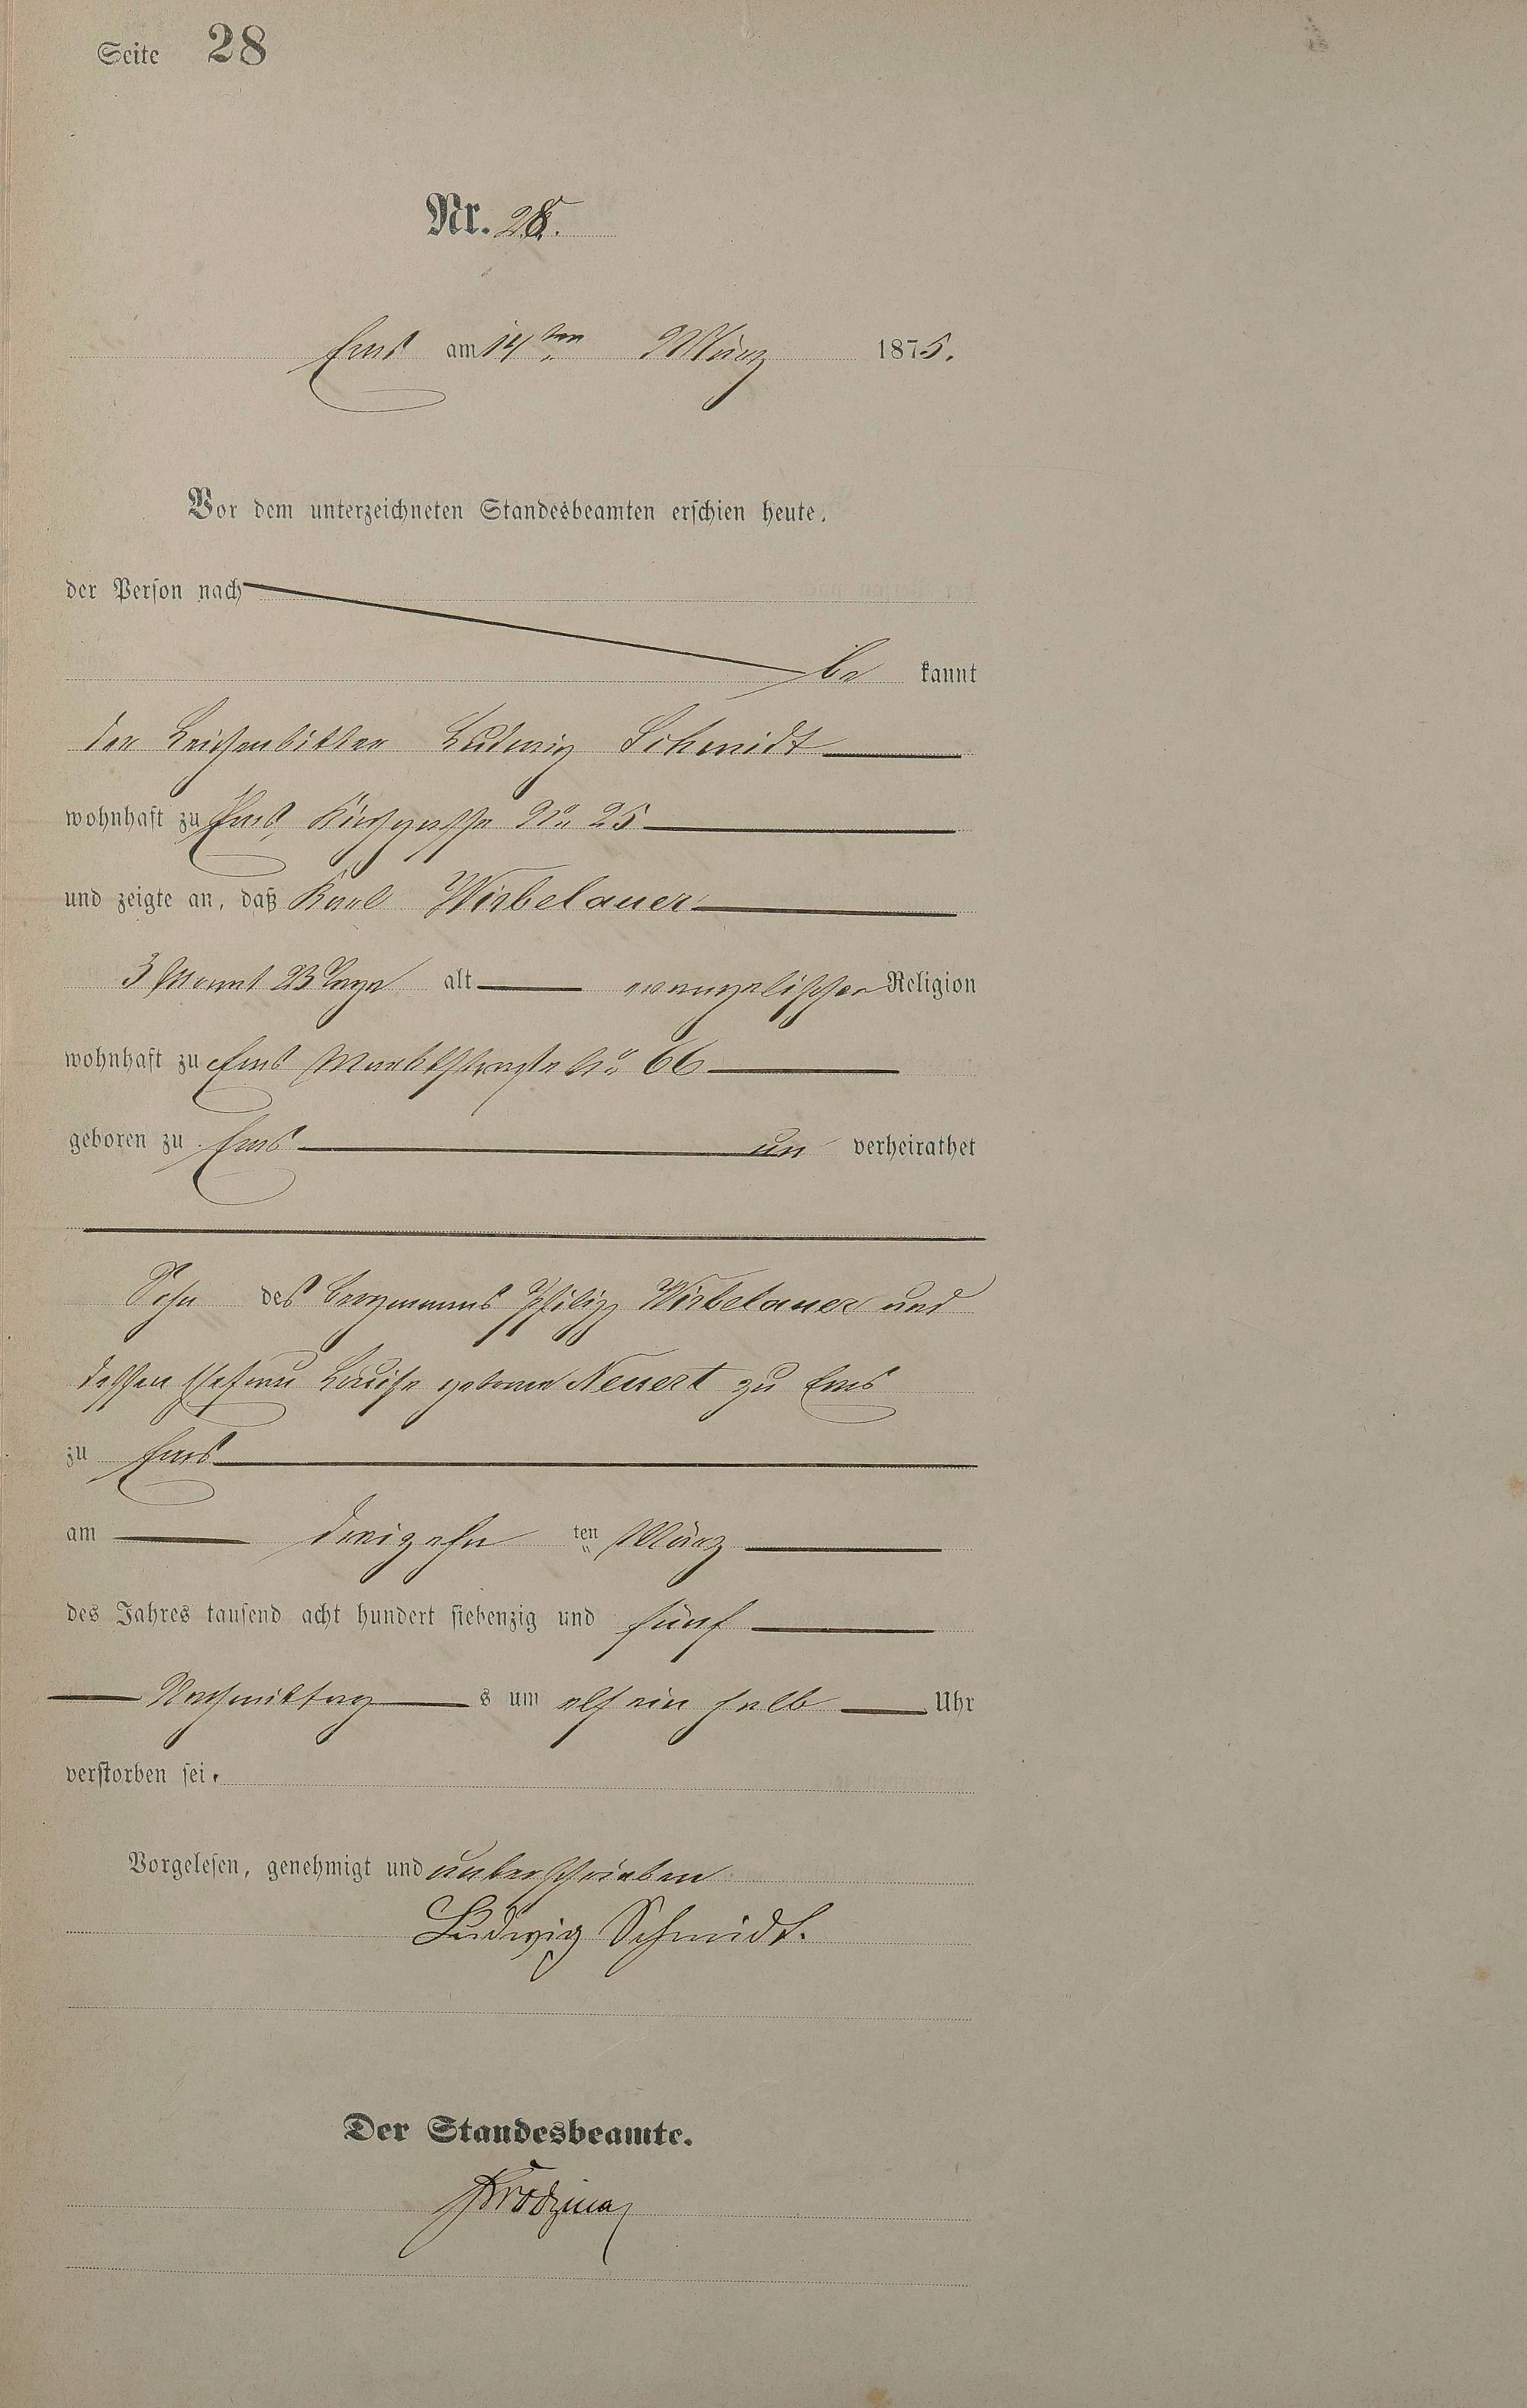 Seite 28
Nr. 28.
Ems am 14ten März 1875.
Vor dem unterzeichneten Standesbeamten erschien heute,
der Person nach
be kannt
der Leichenbitter Ludwig Schmidt
wohnhaft zu Ems, Kirchgasse No 25
und zeigte an, daß Karl Wirbelauer
3 Monat 23 Tage alt evangelischer Religion
wohnhaft zu Ems Marktstraße No 66
geboren zu Ems un verheirathet
Sohn des Bergmanns Philipp Wirbelauer und
dessen Ehefrau Louise geborne Neuert zu Ems
zu Ems
am dreizehn ten März
des Jahres tausend acht hundert siebenzig und fünf
Nachmittag s um elf ein halb Uhr
verstorben sei.
Vorgelesen, genehmigt und unterschrieben
Ludwig Schmidt.
Der Standesbeamte.